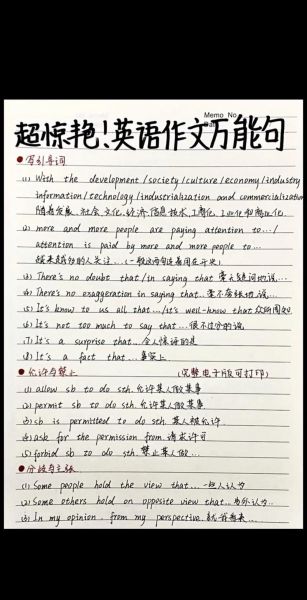 Memo No.
超惊艳!英语作文万能句
写引导词
(1) With the development/society/culture/economy/industry
information/technology/industrialization and commercialization
随着发展、社会、文化、经济、信息、技术、工商化、工业化和商业化.
(2) more and more people are paying attention to.../
attention is paid by more and more people to...
越来越多的人关注...(一般这两句连着用在开头)
(3) There's no doubt that/in saying that 毫无疑问地说...
(4) There's no exaggeration in saying that...毫不夸张地说...
(5) It's know to us all that.../it's well-know that 众所周知
(6) It's not too much to say that...很不过分的说
(7) It's a surprise that...令人惊讶的是
(8) It's a fact that...事实上
允许与禁止 (完整电子版可打印)
(1) allow sb to do sth.允许某人做某事
(2) permit sb to do sth.允许某人做某事
(3) sb is permitted to do sth.某人被允许.
(4) ask for the permission from.请求许可
(5) forbid sb to do sth.禁止某人做...
分歧与主张
(1) Some people hold the view that...一些人认为
(2) Some others hold an opposite view that...另外认为..
(3) In my opinion. from my perspective.就我看来...